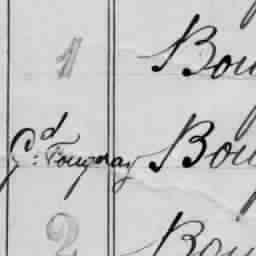 1 Bou
Gd: Fougeray Bou
2 Bou